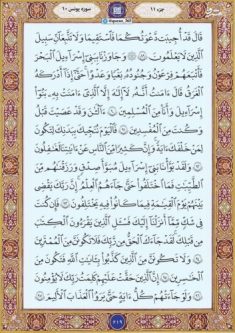 جزء ۱۱
سوره یونس ۱۰
قَالَ قَدْ أُجِيبَت دَّعْوَتُكُمَا فَاسْتَقِيمَا وَلَا تَتَّبِعَانِّ سَبِيلَ
الَّذِينَ لَا يَعْلَمُونَ ﴿۸۹﴾ وَجَاوَزْنَا بِبَنِي إِسْرَائِيلَ الْبَحْرَ
فَأَتْبَعَهُمْ فِرْعَوْنُ وَجُنُودُهُ بَغْيًا وَعَدْوًا حَتَّى إِذَا أَدْرَكَهُ
الْغَرَقُ قَالَ ءَامَنتُ أَنَّهُ لَا إِلَهَ إِلَّا الَّذِي ءَامَنَتْ بِهِ بَنُوا
إِسْرَائِيلَ وَأَنَا مِنَ الْمُسْلِمِينَ ﴿۹۰﴾ ءَالْـَٔنَ وَقَدْ عَصَيْتَ قَبْلُ
وَكُنتَ مِنَ الْمُفْسِدِينَ ﴿۹۱﴾ فَالْيَوْمَ نُنَجِّيكَ بِبَدَنِكَ لِتَكُونَ
لِمَنْ خَلْفَكَ ءَايَةً وَإِنَّ كَثِيرًا مِّنَ النَّاسِ عَنْ ءَايَاتِنَا لَغَافِلُونَ
﴿۹۲﴾ وَلَقَدْ بَوَّأْنَا بَنِي إِسْرَائِيلَ مُبَوَّأَ صِدْقٍ وَرَزَقْنَاهُم مِّنَ
الطَّيِّبَاتِ فَمَا اخْتَلَفُوا حَتَّى جَاءَهُمُ الْعِلْمُ إِنَّ رَبَّكَ يَقْضِي
بَيْنَهُمْ يَوْمَ الْقِيَامَةِ فِيمَا كَانُوا فِيهِ يَخْتَلِفُونَ ﴿۹۳﴾ فَإِن كُنتَ
فِي شَكٍّ مِّمَّا أَنزَلْنَا إِلَيْكَ فَسْـَٔلِ الَّذِينَ يَقْرَءُونَ الْكِتَابَ
مِن قَبْلِكَ لَقَدْ جَاءَكَ الْحَقُّ مِن رَّبِّكَ فَلَا تَكُونَنَّ مِنَ الْمُمْتَرِينَ
﴿۹۴﴾ وَلَا تَكُونَنَّ مِنَ الَّذِينَ كَذَّبُوا بِـَٔايَاتِ اللَّهِ فَتَكُونَ مِنَ
الْخَاسِرِينَ ﴿۹۵﴾ إِنَّ الَّذِينَ حَقَّتْ عَلَيْهِمْ كَلِمَتُ رَبِّكَ لَا يُؤْمِنُونَ
﴿۹۶﴾ وَلَوْ جَاءَتْهُمْ كُلُّ ءَايَةٍ حَتَّى يَرَوُا الْعَذَابَ الْأَلِيمَ ﴿۹۷﴾
۲۱۹